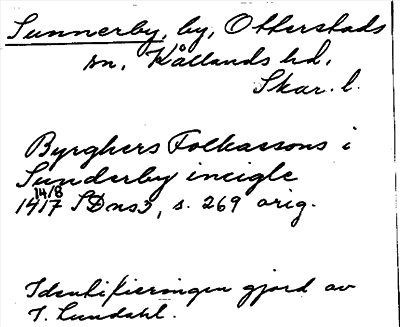 Sunnerby, by, Otterstads
sn, Kållands hd,
Skar. l.
Byrghers Folkassons i
Sunderby incigle
14/8
1417 SDns3, s. 269 orig.
Identifieringen gjord av
I. Lundahl.